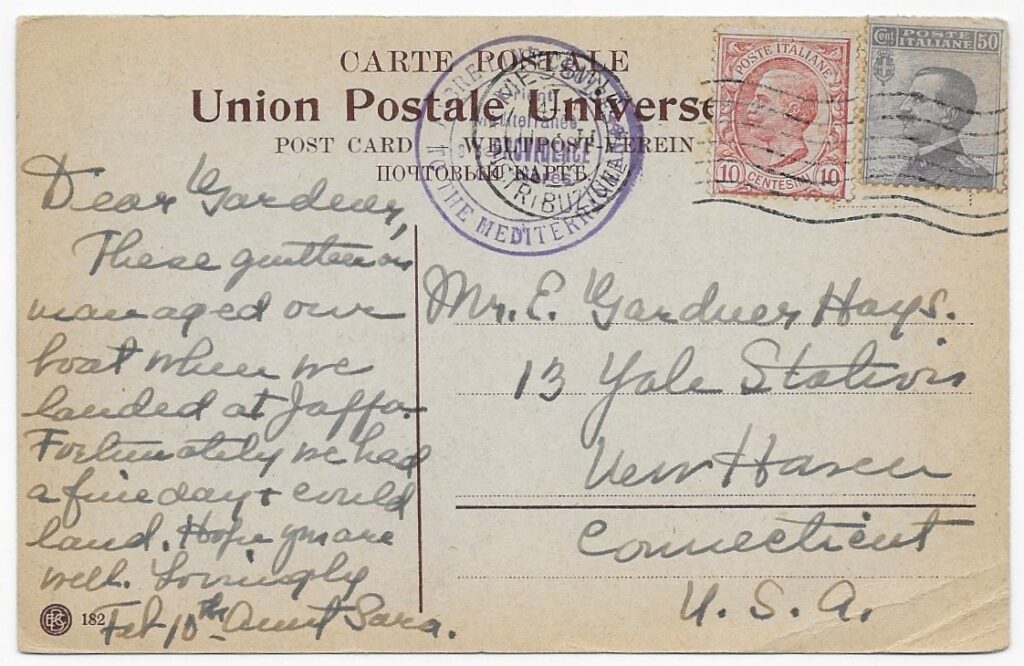 CARTE POSTALE
Union Postale Universe
POST CARD WELTPOST-VEREIN
ПОЧТОВЫЯ КАРТЪ.
TO THE MEDITERRANEAN
Mediterranée
PROVIDENCE
MESSINA
DISTRIBUZIONE
POSTE ITALIANE
10 CENTESIMI 10
Cent POSTE ITALIANE 50
Dear Gardner,
These gentlemen
managed our
boat when we
landed at Jaffa.
Fortunately we had
a fine day + could
land. Hope you are
well. Lovingly
Feb 10th Aunt Sara.
182
Mr. E. Gardner Hays.
13 Yale Station
New Haven
Connecticut
U. S. A.